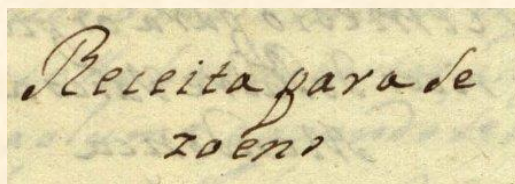 Receita para de
zoeno